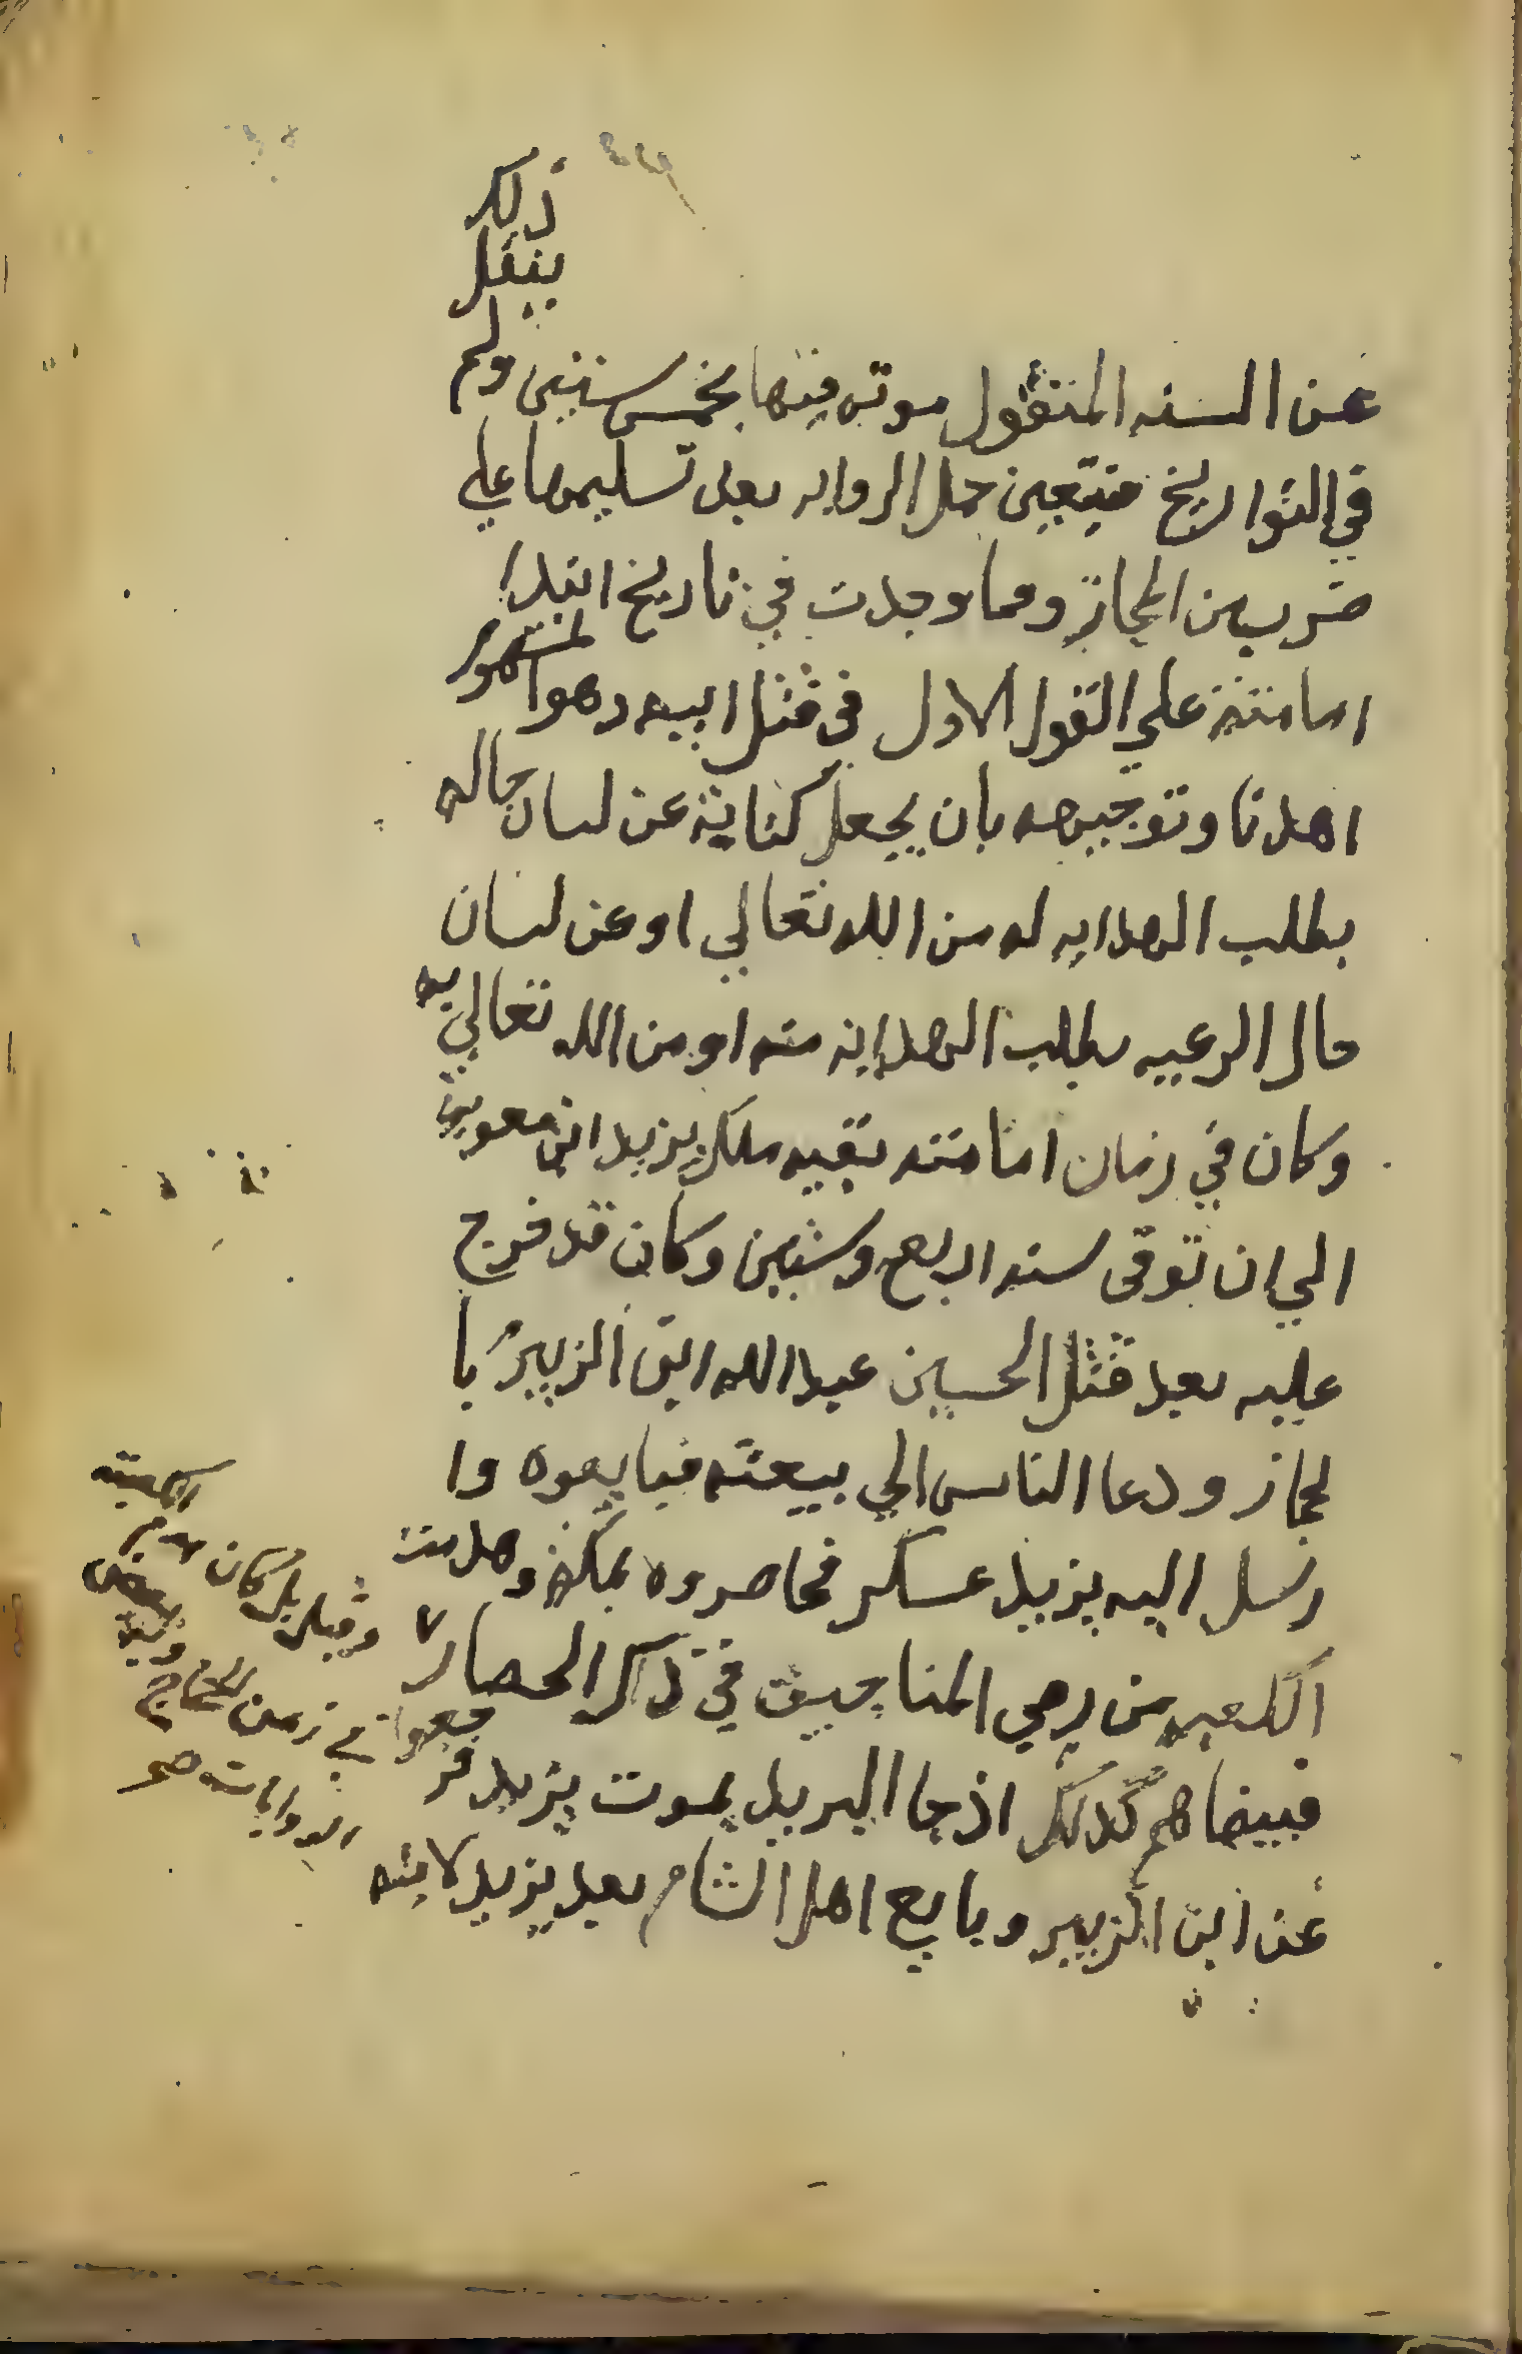 عن السنه المنقول موته فيها بخمس سنين ولم
ينقل
ذلك
في التواريخ فيتعين حمل الروايه بعد تسليمها على
ضرب من المجاز ومما وجدت في تاريخ ابتدا
امامته علي القول الاول في قتل ابيه وهو المشهور
اهدنا وتوجيهه بان يجعل كناية عن لسان حاله
بطلب الهدايه له من الله تعالي او عن لسان
حال الرعيه بطلب الهداية منه او من الله تعالي به
وكان في زمان امامته بقيه ملك يزيد ابن معوية
الي ان توفى سنه اربع وستين وكان قد خرج
عليه بعد قتل الحسين عبد الله ابن الزبير با
لحجاز ودعا الناس الي بيعته فبايعوه وا
رسل اليه يزيد عسكر فحاصروه بمكة وهدمت
الكعبه من رمي المناجيق في ذلك الحصار ٧
فبينما هم كذلك اذ جا البريد بموت يزيد فر
جعوا
عن ابن الزبير وبايع اهل الشام بعد يزيد لابنه
وقيل بل كان هدم
الكعبة
في زمن الحجاج
وفيه بعض
الروايات صح